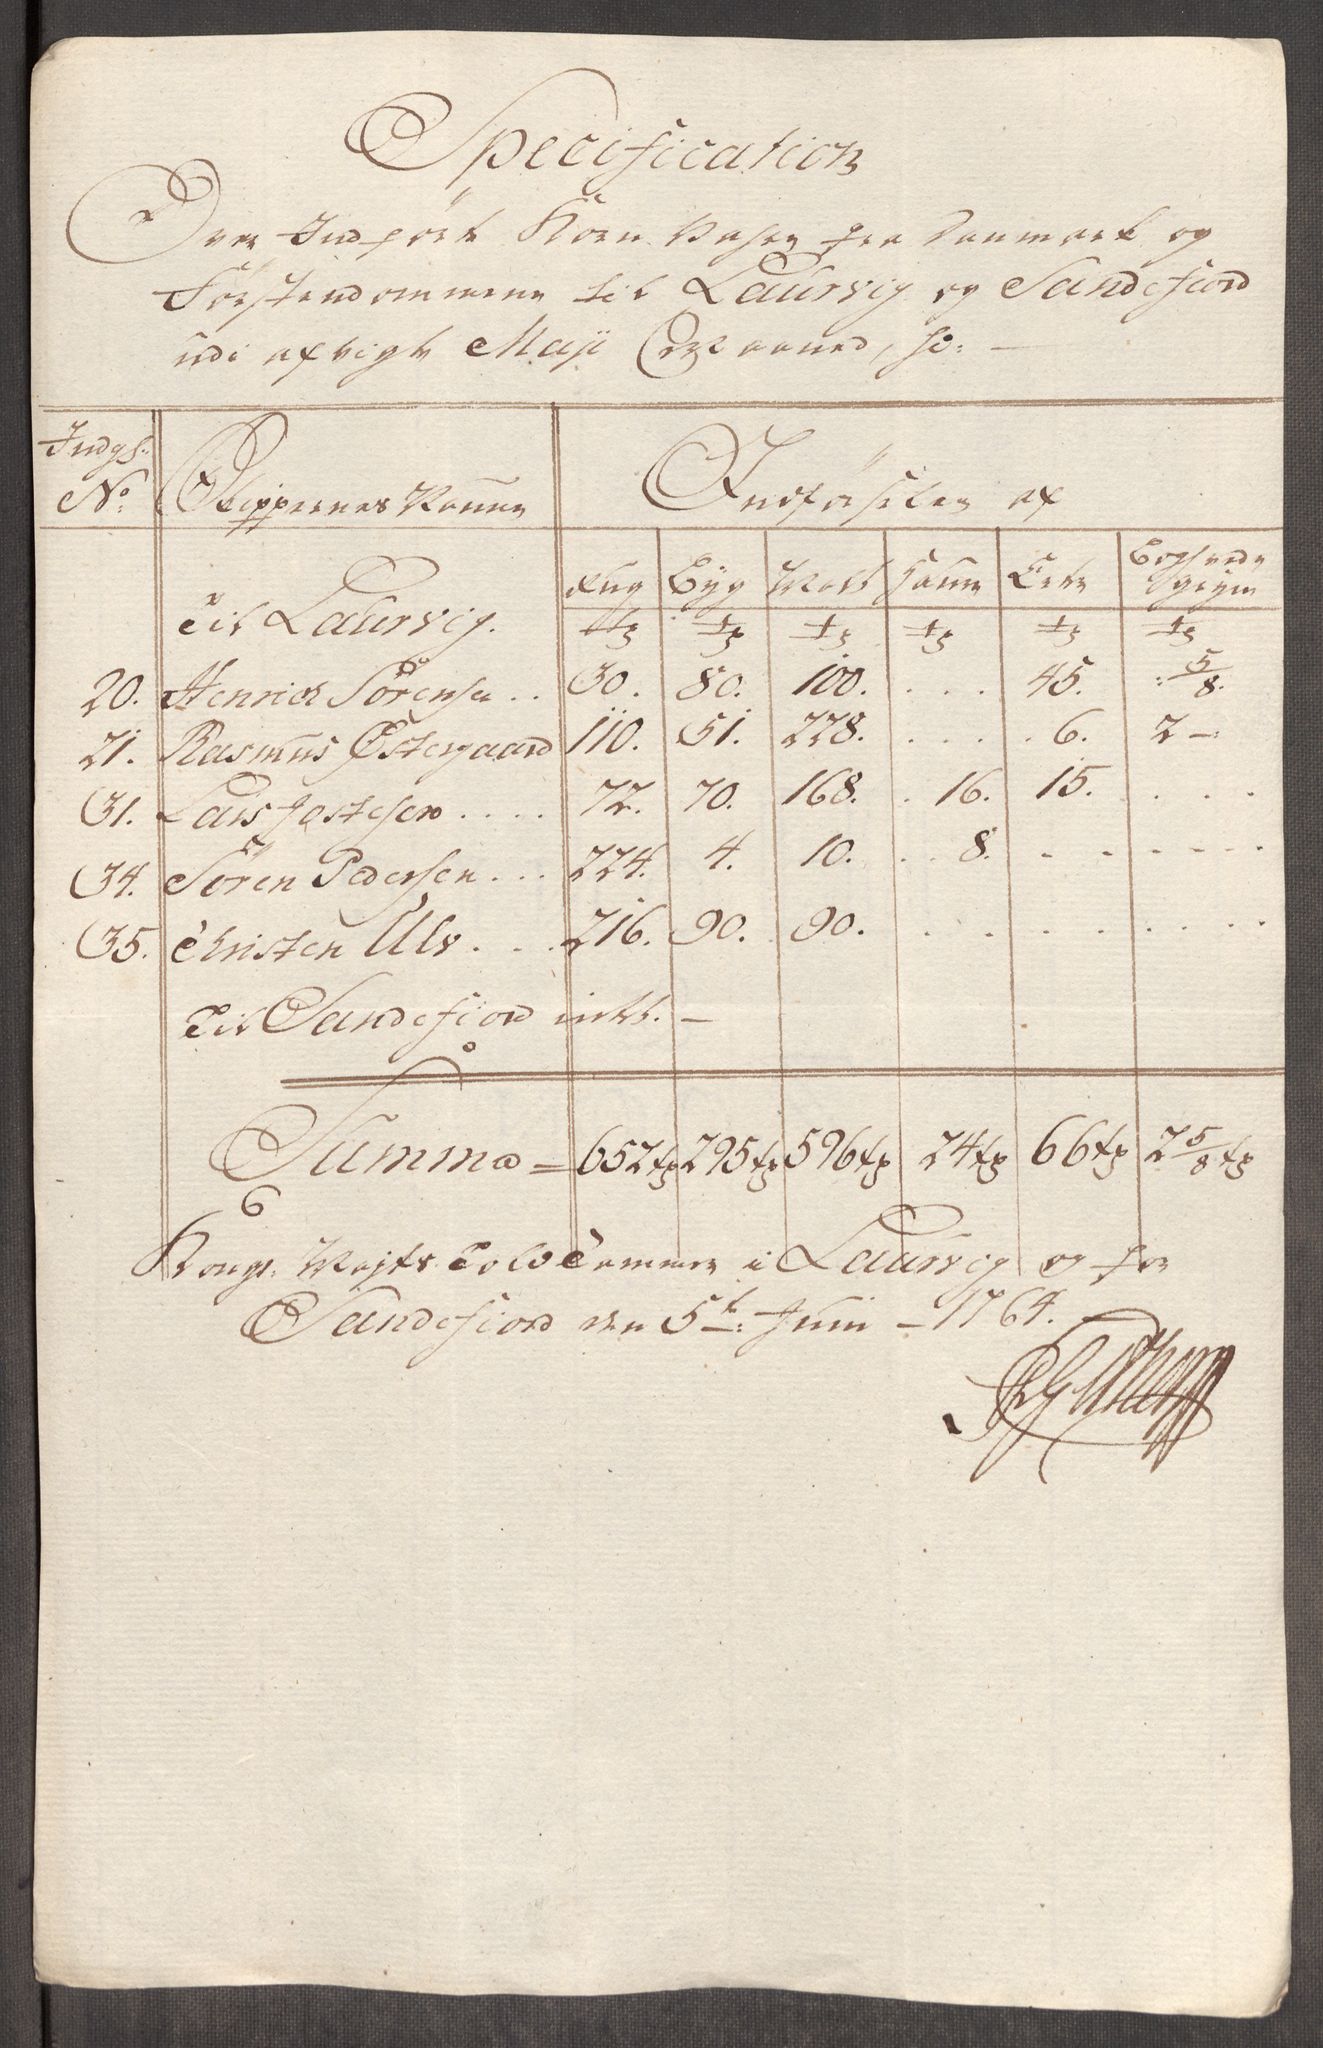 Specification
Over Indført Korn Vahre fra Danmark og
Førstendommene til Laurvig og Sandefiord
udi afvigte Maji Maaned, so: —
Indg:
No: Skippernes Naune Indførselen af
Rug Byg Malt Haure Erter Boghvede gryn
Til Laurvig. tr tr tr tr tr tr
20. Henrich Sörensen . . 30. 80. 100. . . . . 45. : 5/8.
21. Rasmus Østergaard 110. 51. 228. . . . . 6. 2 —
31. Lars Jostesen . . . . 72. 70. 168. . 16. 15. . . . .
34. Sören Pedersen . . . 224. 4. 10. . . 8. . . . . . . .
35. Christen Ulv . . . . 216. 90. 90. . . . . . . . . . .
Til Sandefiord intet. —
Summa = 652 tr 295 tr 596 tr 24 tr 66 tr 2 5/8 tr
Kongl: Mayts Told Cammer i Laurvig og for
Sandefiord den 5t: Junii — 1764.